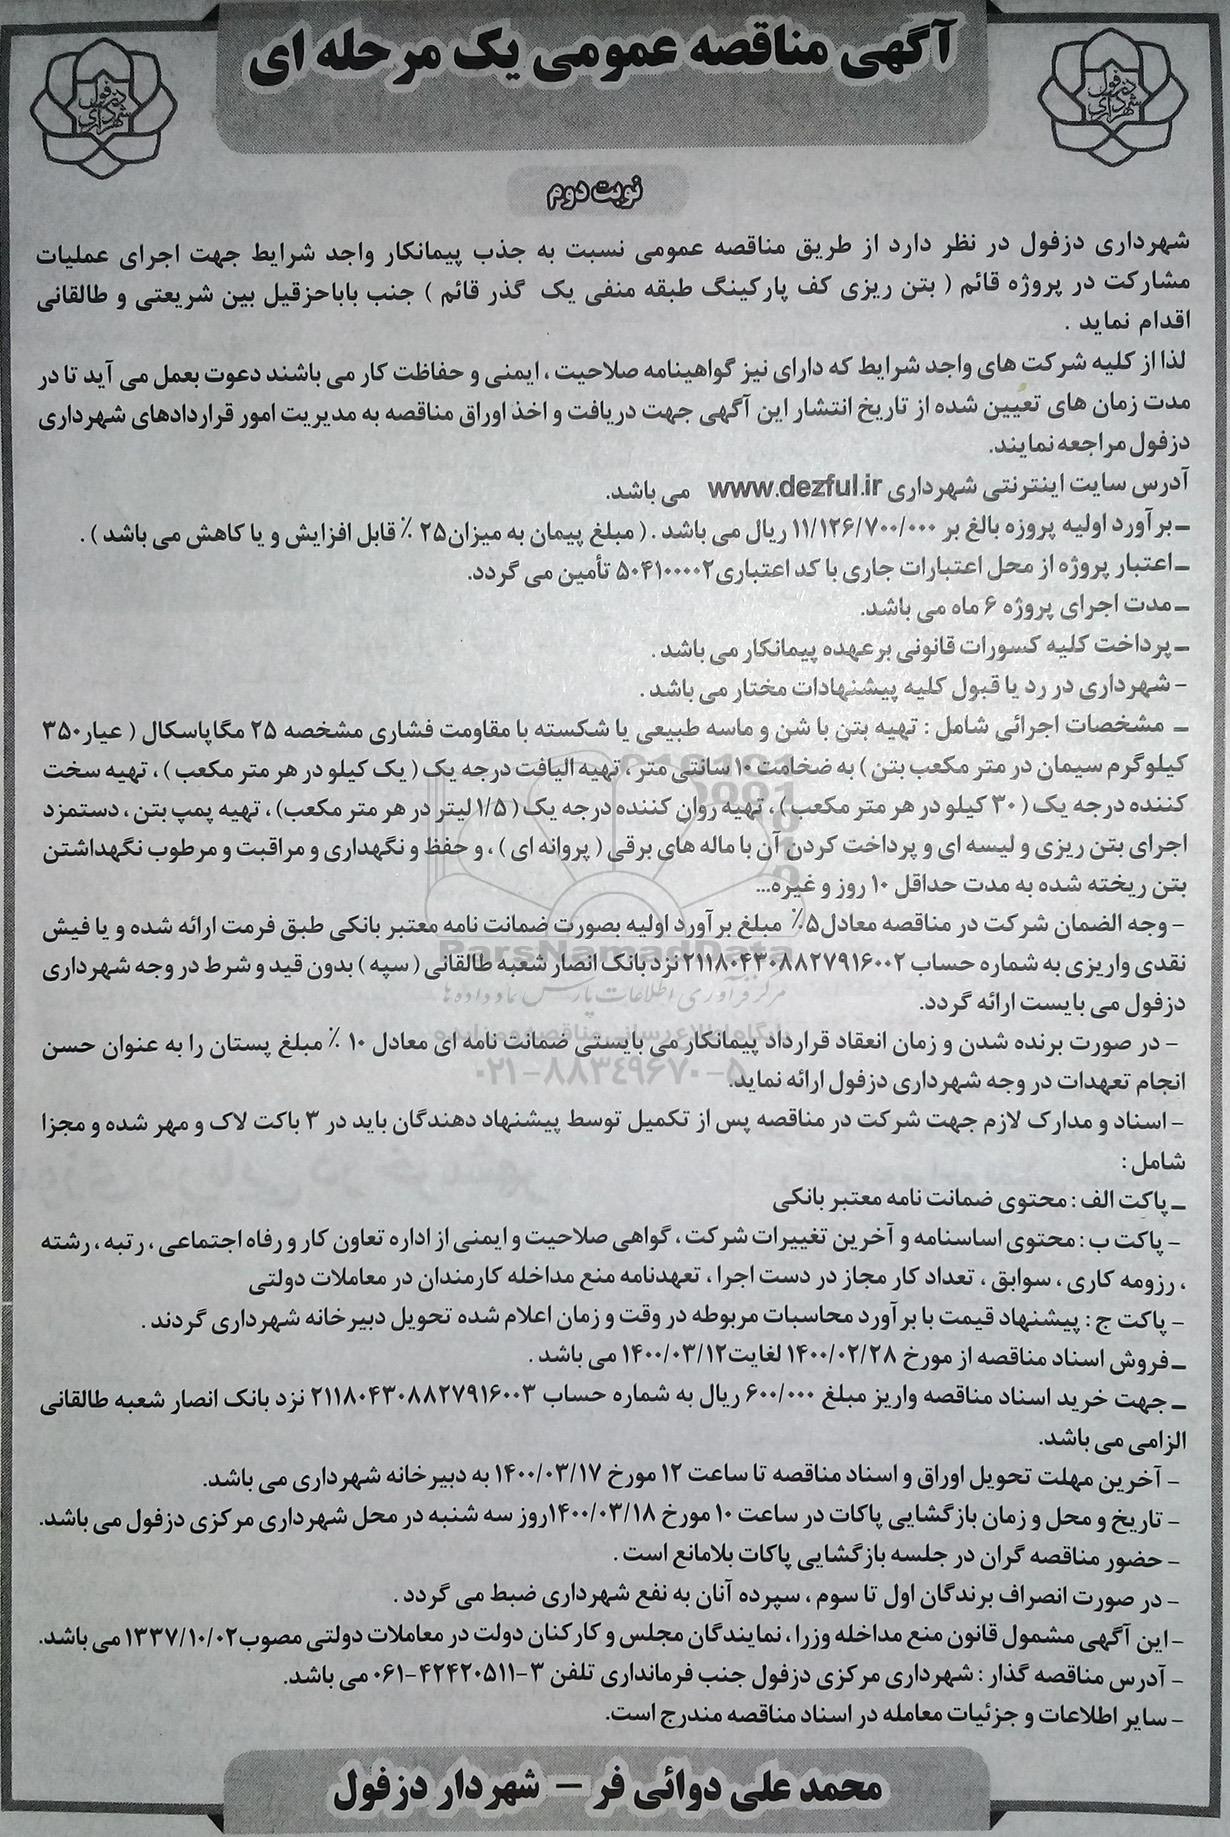 آگهی مناقصه عمومی یک مرحله ای
شهرداری دزفول
شهرداری دزفول
نوبت دوم
شهرداری دزفول در نظر دارد از طریق مناقصه عمومی نسبت به جذب پیمانکار واجد شرایط جهت اجرای عملیات
مشارکت در پروژه قائم ( بتن ریزی کف پارکینگ طبقه منفی یک گذر قائم ) جنب باباحزقیل بین شریعتی و طالقانی
اقدام نماید .
لذا از کلیه شرکت های واجد شرایط که دارای نیز گواهینامه صلاحیت ، ایمنی و حفاظت کار می باشند دعوت بعمل می آید تا در
مدت زمان های تعیین شده از تاریخ انتشار این آگهی جهت دریافت و اخذ اوراق مناقصه به مدیریت امور قراردادهای شهرداری
دزفول مراجعه نمایند.
آدرس سایت اینترنتی شهرداری www.dezful.ir می باشد.
ـ برآورد اولیه پروزه بالغ بر ۱۱/۱۲۶/۷۰۰/۰۰۰ ریال می باشد . ( مبلغ پیمان به میزان ۲۵ ٪ قابل افزایش و یا کاهش می باشد ) .
ـ اعتبار پروژه از محل اعتبارات جاری با کد اعتباری ۵۰۴۱۰۰۰۰۲ تأمین می گردد.
ـ مدت اجرای پروژه ۶ ماه می باشد.
ـ پرداخت کلیه کسورات قانونی برعهده پیمانکار می باشد .
- شهرداری در رد یا قبول کلیه پیشنهادات مختار می باشد .
ـ مشخصات اجرائی شامل : تهیه بتن با شن و ماسه طبیعی یا شکسته با مقاومت فشاری مشخصه ۲۵ مگاپاسکال ( عیار ۳۵۰
کیلوگرم سیمان در متر مکعب بتن ) به ضخامت ۱۰ سانتی متر ، تهیه الیافت درجه یک ( یک کیلو در هر متر مکعب ) ، تهیه سخت
کننده درجه یک ( ۳۰ کیلو در هر متر مکعب ) ، تهیه روان کننده درجه یک ( ۱/۵ لیتر در هر متر مکعب) ، تهیه پمپ بتن ، دستمزد
اجرای بتن ریزی و لیسه ای و پرداخت کردن آن با ماله های برقی ( پروانه ای ) ، و حفظ و نگهداری و مراقبت و مرطوب نگهداشتن
بتن ریخته شده به مدت حداقل ۱۰ روز و غیره...
- وجه الضمان شرکت در مناقصه معادل ۵٪ مبلغ برآورد اولیه بصورت ضمانت نامه معتبر بانکی طبق فرمت ارائه شده و یا فیش
نقدی واریزی به شماره حساب ۲۱۱۸۰۴۳۰۸۸۲۷۹۱۶۰۰۲ نزد بانک انصار شعبه طالقانی ( سپه ) بدون قید و شرط در وجه شهرداری
دزفول می بایست ارائه گردد.
- در صورت برنده شدن و زمان انعقاد قرارداد پیمانکار می بایستی ضمانت نامه ای معادل ۱۰ ٪ مبلغ پستان را به عنوان حسن
انجام تعهدات در وجه شهرداری دزفول ارائه نماید.
- اسناد و مدارک لازم جهت شرکت در مناقصه پس از تکمیل توسط پیشنهاد دهندگان باید در ۳ باکت لاک و مهر شده و مجزا
شامل :
ـ پاکت الف : محتوی ضمانت نامه معتبر بانکی
- پاکت ب : محتوی اساسنامه و آخرین تغییرات شرکت ، گواهی صلاحیت و ایمنی از اداره تعاون کار و رفاه اجتماعی ، رتبه ، رشته
، رزومه کاری ، سوابق ، تعداد کار مجاز در دست اجرا ، تعهدنامه منع مداخله کارمندان در معاملات دولتی
- پاکت ج : پیشنهاد قیمت با برآورد محاسبات مربوطه در وقت و زمان اعلام شده تحویل دبیرخانه شهرداری گردند .
ـ فروش اسناد مناقصه از مورخ ۱۴۰۰/۰۲/۲۸ لغایت ۱۴۰۰/۰۳/۱۲ می باشد .
ـ جهت خرید اسناد مناقصه واریز مبلغ ۶۰۰/۰۰۰ ریال به شماره حساب ۲۱۱۸۰۴۳۰۸۸۲۷۹۱۶۰۰۳ نزد بانک انصار شعبه طالقانی
الزامی می باشد.
- آخرین مهلت تحویل اوراق و اسناد مناقصه تا ساعت ۱۲ مورخ ۱۴۰۰/۰۳/۱۷ به دبیرخانه شهرداری می باشد.
- تاریخ و محل و زمان بازگشایی پاکات در ساعت ۱۰ مورخ ۱۴۰۰/۰۳/۱۸ روز سه شنبه در محل شهرداری مرکزی دزفول می باشد.
- حضور مناقصه گران در جلسه بازگشایی پاکات بلامانع است .
- در صورت انصراف برندگان اول تا سوم ، سپرده آنان به نفع شهرداری ضبط می گردد .
- این آگهی مشمول قانون منع مداخله وزرا ، نمایندگان مجلس و کارکنان دولت در معاملات دولتی مصوب ۱۳۳۷/۱۰/۰۲ می باشد.
- آدرس مناقصه گذار : شهرداری مرکزی دزفول جنب فرمانداری تلفن ۳-۴۲۴۲۰۵۱۱-۰۶۱ می باشد.
- سایر اطلاعات و جزئیات معامله در اسناد مناقصه مندرج است.
محمد علی دوائی فر – شهردار دزفول
ParsNamadData
مرکز فرآوری اطلاعات پارس نماد داده ها
پایگاه اطلاع رسانی مناقصه و مزایده
۰۲۱-۸۸۳۴۹۶۷۰-۵